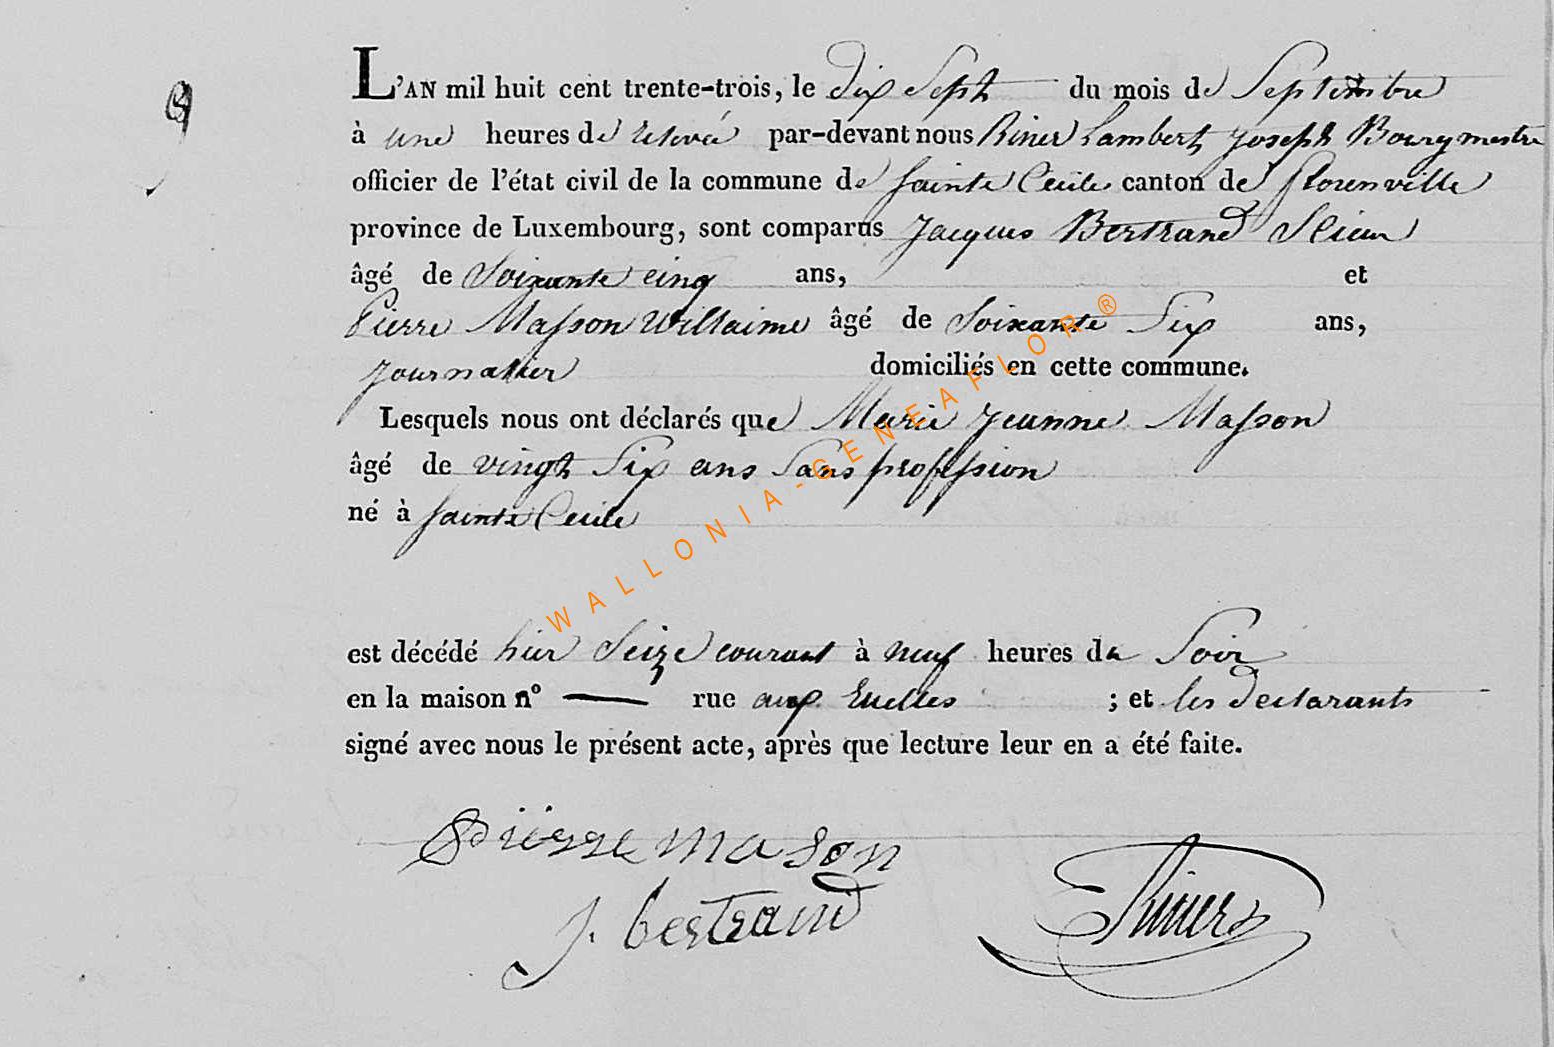 9
L'AN mil huit cent trente-trois, le dix Sept du mois de Septembre
à une heures de relevée par-devant nous Riner Lambert Joseph Bourgmestre
officier de l'état civil de la commune de Sainte Cecile canton de florenville
province de Luxembourg, sont comparus Jacques Bertrand
âgé de Soixante cinq ans, et
Pierre Masson Willaime âgé de Soixante Six ans,
journalier domiciliés en cette commune.
Lesquels nous ont déclarés que Marie Jeanne Masson
âgé de vingt Six ans Sans profession
né à Sainte Cecile
WALLONIA-GENEAFLOR®
est décédé hier Seize courant à neuf heures du Soir
en la maison nº — rue aux ; et les declarants
signé avec nous le présent acte, après que lecture leur en a été faite.
Pierre mason
J. bertrand
Riner